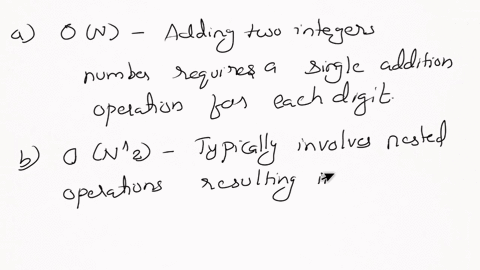 a) O(N) - Adding two integers
number requires a single addition
operation for each digit.
b) O(N^2) - Typically involves nested
operations resulting in